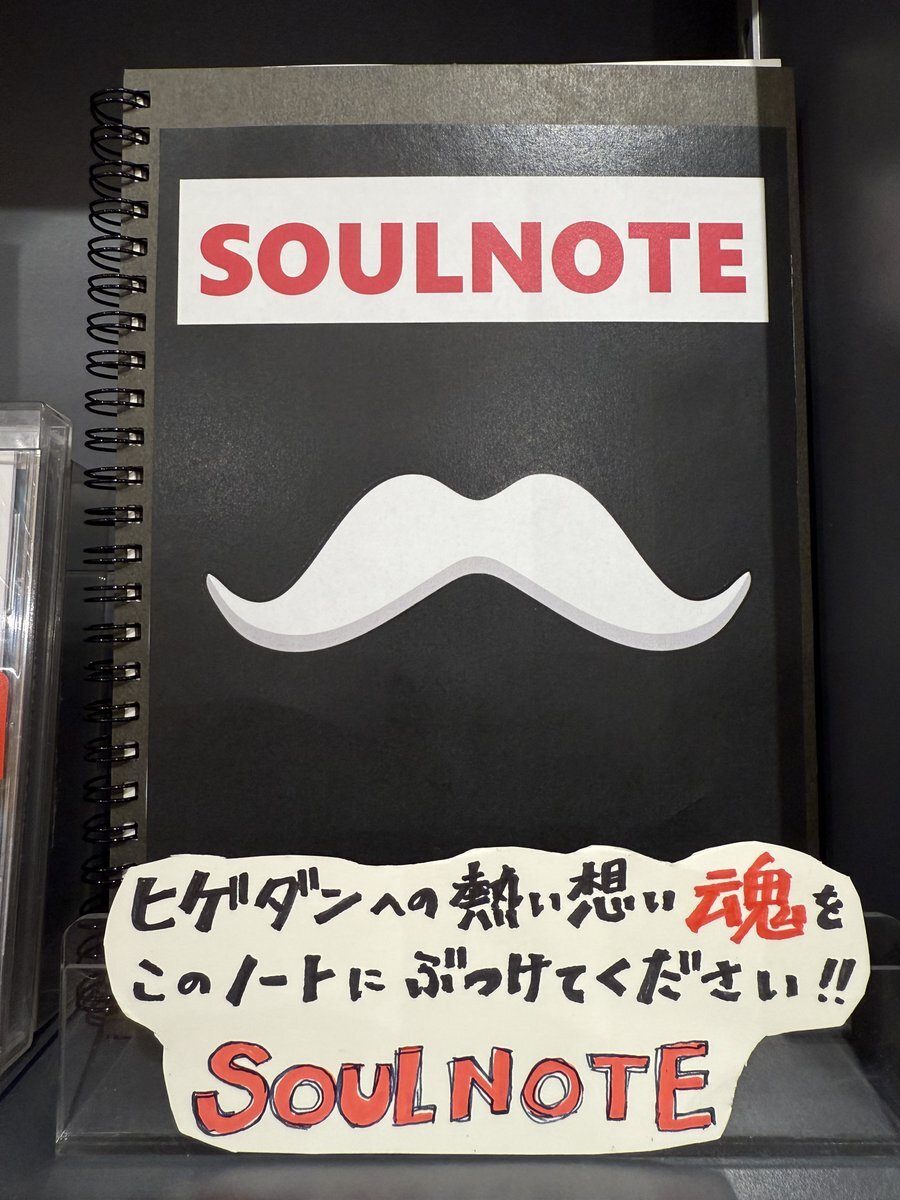 SOULNOTE
ヒゲダンへの熱い想い魂を
このノートにぶつけてください!!
SOULNOTE